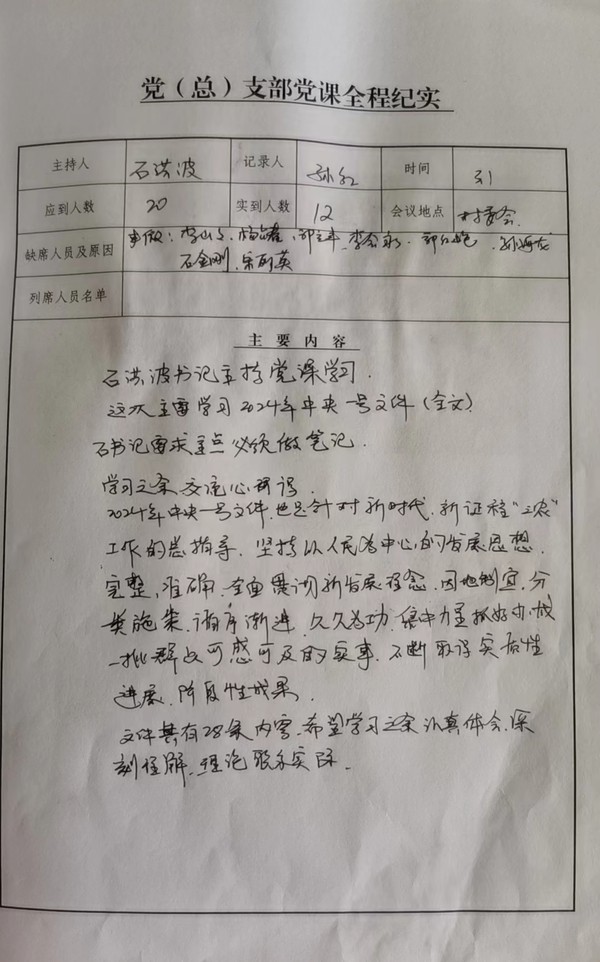 党（总）支部党课全程纪实
主持人 石洪波 记录人 孙红 时间 3.1
应到人数 20 实到人数 12 会议地点 村委会.
缺席人员及原因 事假：
石金刚
列席人员名单
主要内容
石洪波书记主持党课学习.
这次主要学习2024年中央一号文件（全文）.
石书记要求重点必须做笔记.
学习之余交流心得.
2024年中央一号文件.也是针对新时代.新征程“三农”
工作的总指导.坚持以人民为中心的发展思想.
完整,准确.全面贯彻新发展理念.因地制宜,分
类施策.循序渐进.久久为功.集中力量抓好办成
一批群众可感可及的实事.不断取得实质性
进展.阶段性成果.
文件共有28条内容.希望学习之余认真体会.深
刻理解.理论联系实际.